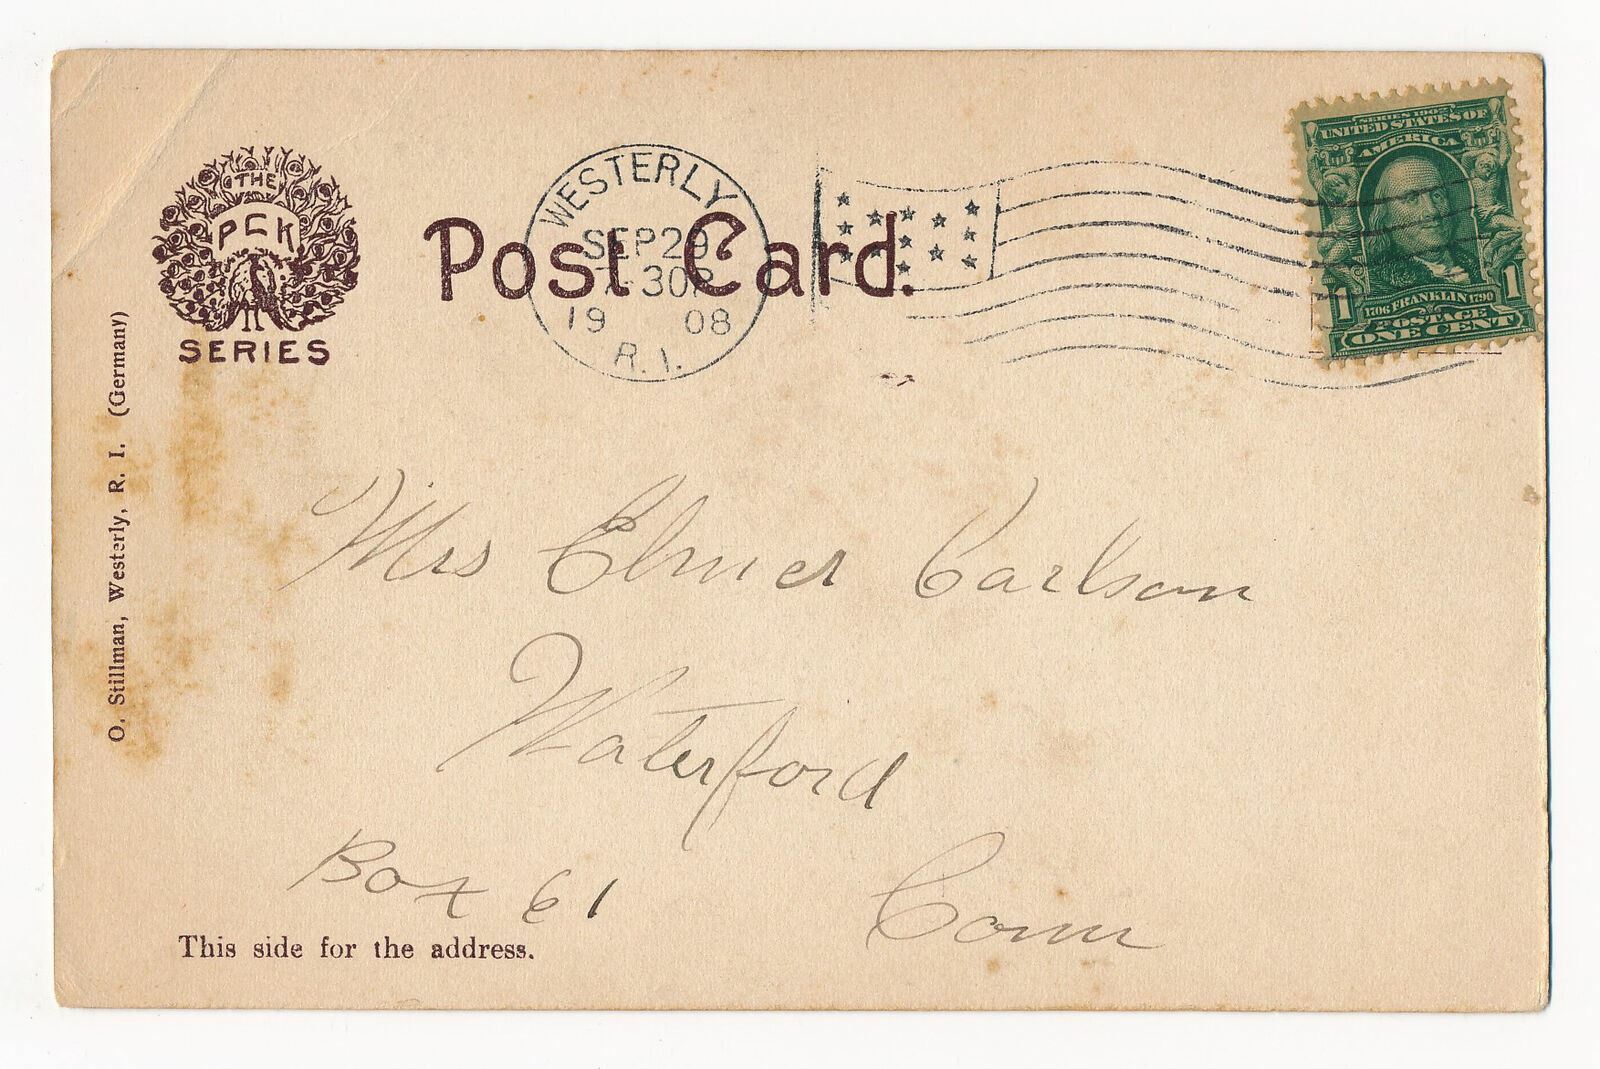 THE
PCK
SERIES
Post Card.
WESTERLY
SEP 29
7 30P
19 08
R. I.
SERIES 1902
UNITED STATES OF
AMERICA
1 1706 FRANKLIN 1790 1
POSTAGE
ONE CENT
O. Stillman, Westerly, R. I. (Germany)
Mrs Elmer Carlson
Waterford
Box 61 Conn
This side for the address.